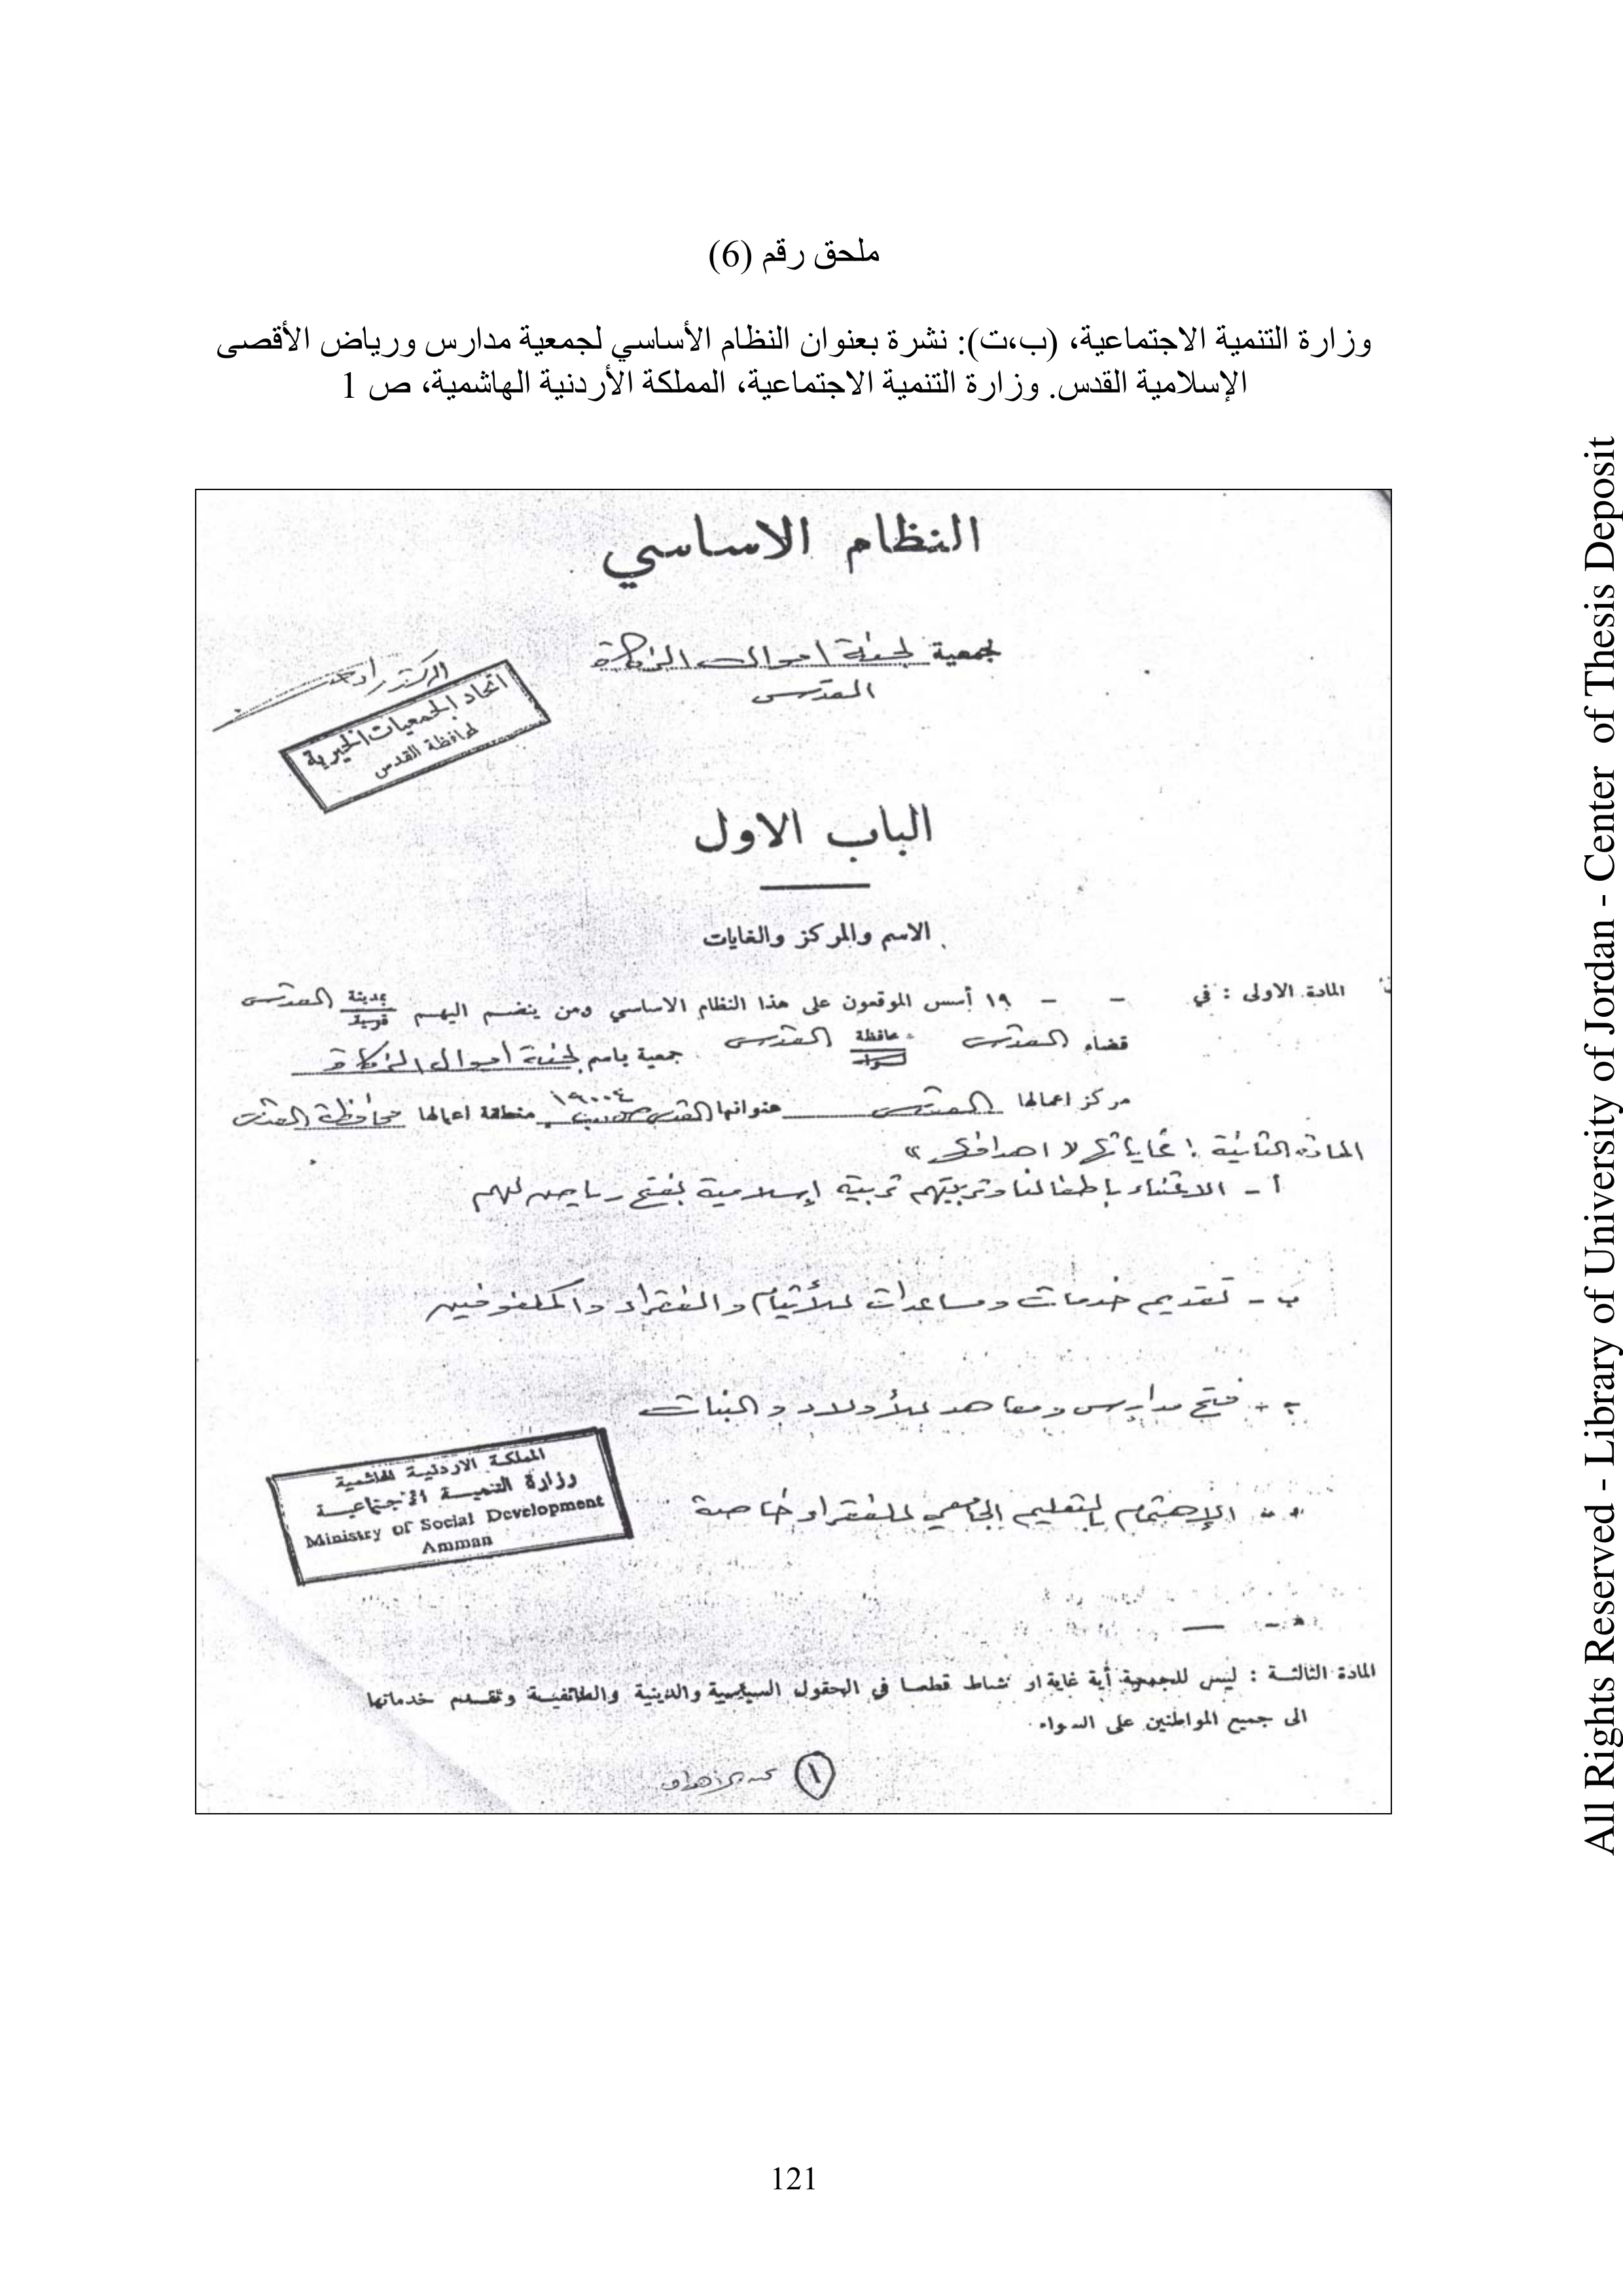 ملحق رقم (6)
وزارة التنمية الاجتماعية، (ب،ت): نشرة بعنوان النظام الأساسي لجمعية مدارس ورياض الأقصى
الإسلامية القدس. وزارة التنمية الاجتماعية، المملكة الأردنية الهاشمية، ص 1
النظام الاساسي
لجمعية لجنة اموال الزكاة
القدس
اتحاد الجمعيات الخيرية
لمحافظة القدس
الباب الاول
الاسم والمركز والغايات
المادة الاولى : في - - ١٩ أسس الموقعون على هذا النظام الاساسي ومن ينضم اليهم بمدينة قرية القدس
قضاء القدس محافظة لواء القدس جمعية باسم لجنة أموال الزكاة
مركز اعمالها القدس عنوانها القدس ١٩٠٠٤ منطقة اعمالها محافظة القدس
المادة الثانية : غاياتها لا اهدافها »
أ - الاعتناء باطفالنا وتربيتهم تربية إسلامية بفتح رياض لهم
ب - تقديم خدمات ومساعدات للأيتام والفقراء والمكفوفين
فتح مدارس ومعاهد للأولاد والبنات
الإهتمام بالتعليم الجامعي للفقراء خاصة
المملكة الاردنية الهاشمية
وزارة التنمية الاجتماعية
Ministry of Social Development
Amman
المادة الثالثة : ليس للجمعية أية غاية او نشاط قطعا في الحقول السياسية والدينية والطائفية وتقدم خدماتها
الى جميع المواطنين على السواء.
١
121
All Rights Reserved - Library of University of Jordan - Center of Thesis Deposit